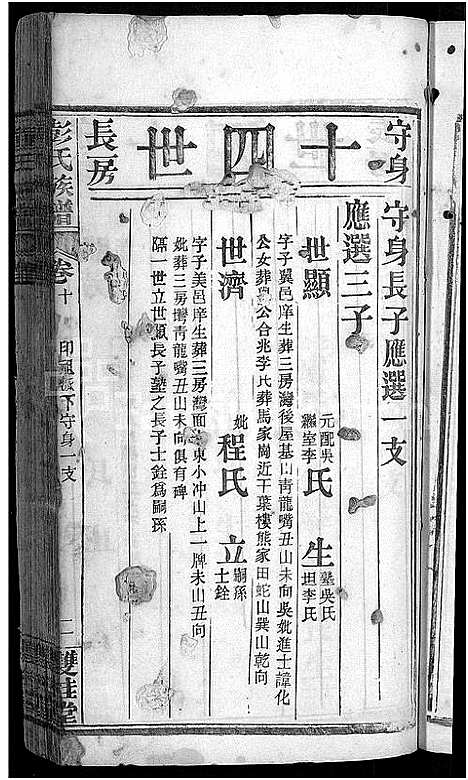 守身
十四世
長房
守身長子應選一支
應選三子
世顯 元配吳 繼室李 氏 生 塾吳氏 坦李氏
字子翼邑庠生葬三房灣後屋基山青龍嘴丑山未向吳妣進士諱化
公女葬與公合兆李氏葬馬家崗近干葉樓熊家田蛇山巽山乾向
世濟 妣程氏 立 嗣孫 士銓
字子美邑庠生葬三房灣面 東小冲山上一牌未山丑向
妣葬三房灣青龍嘴丑山未向俱有碑
隔一世立世顯長子塾之長子士銓爲嗣孫
彭氏族譜
卷十
下守身一支
二
雙桂堂